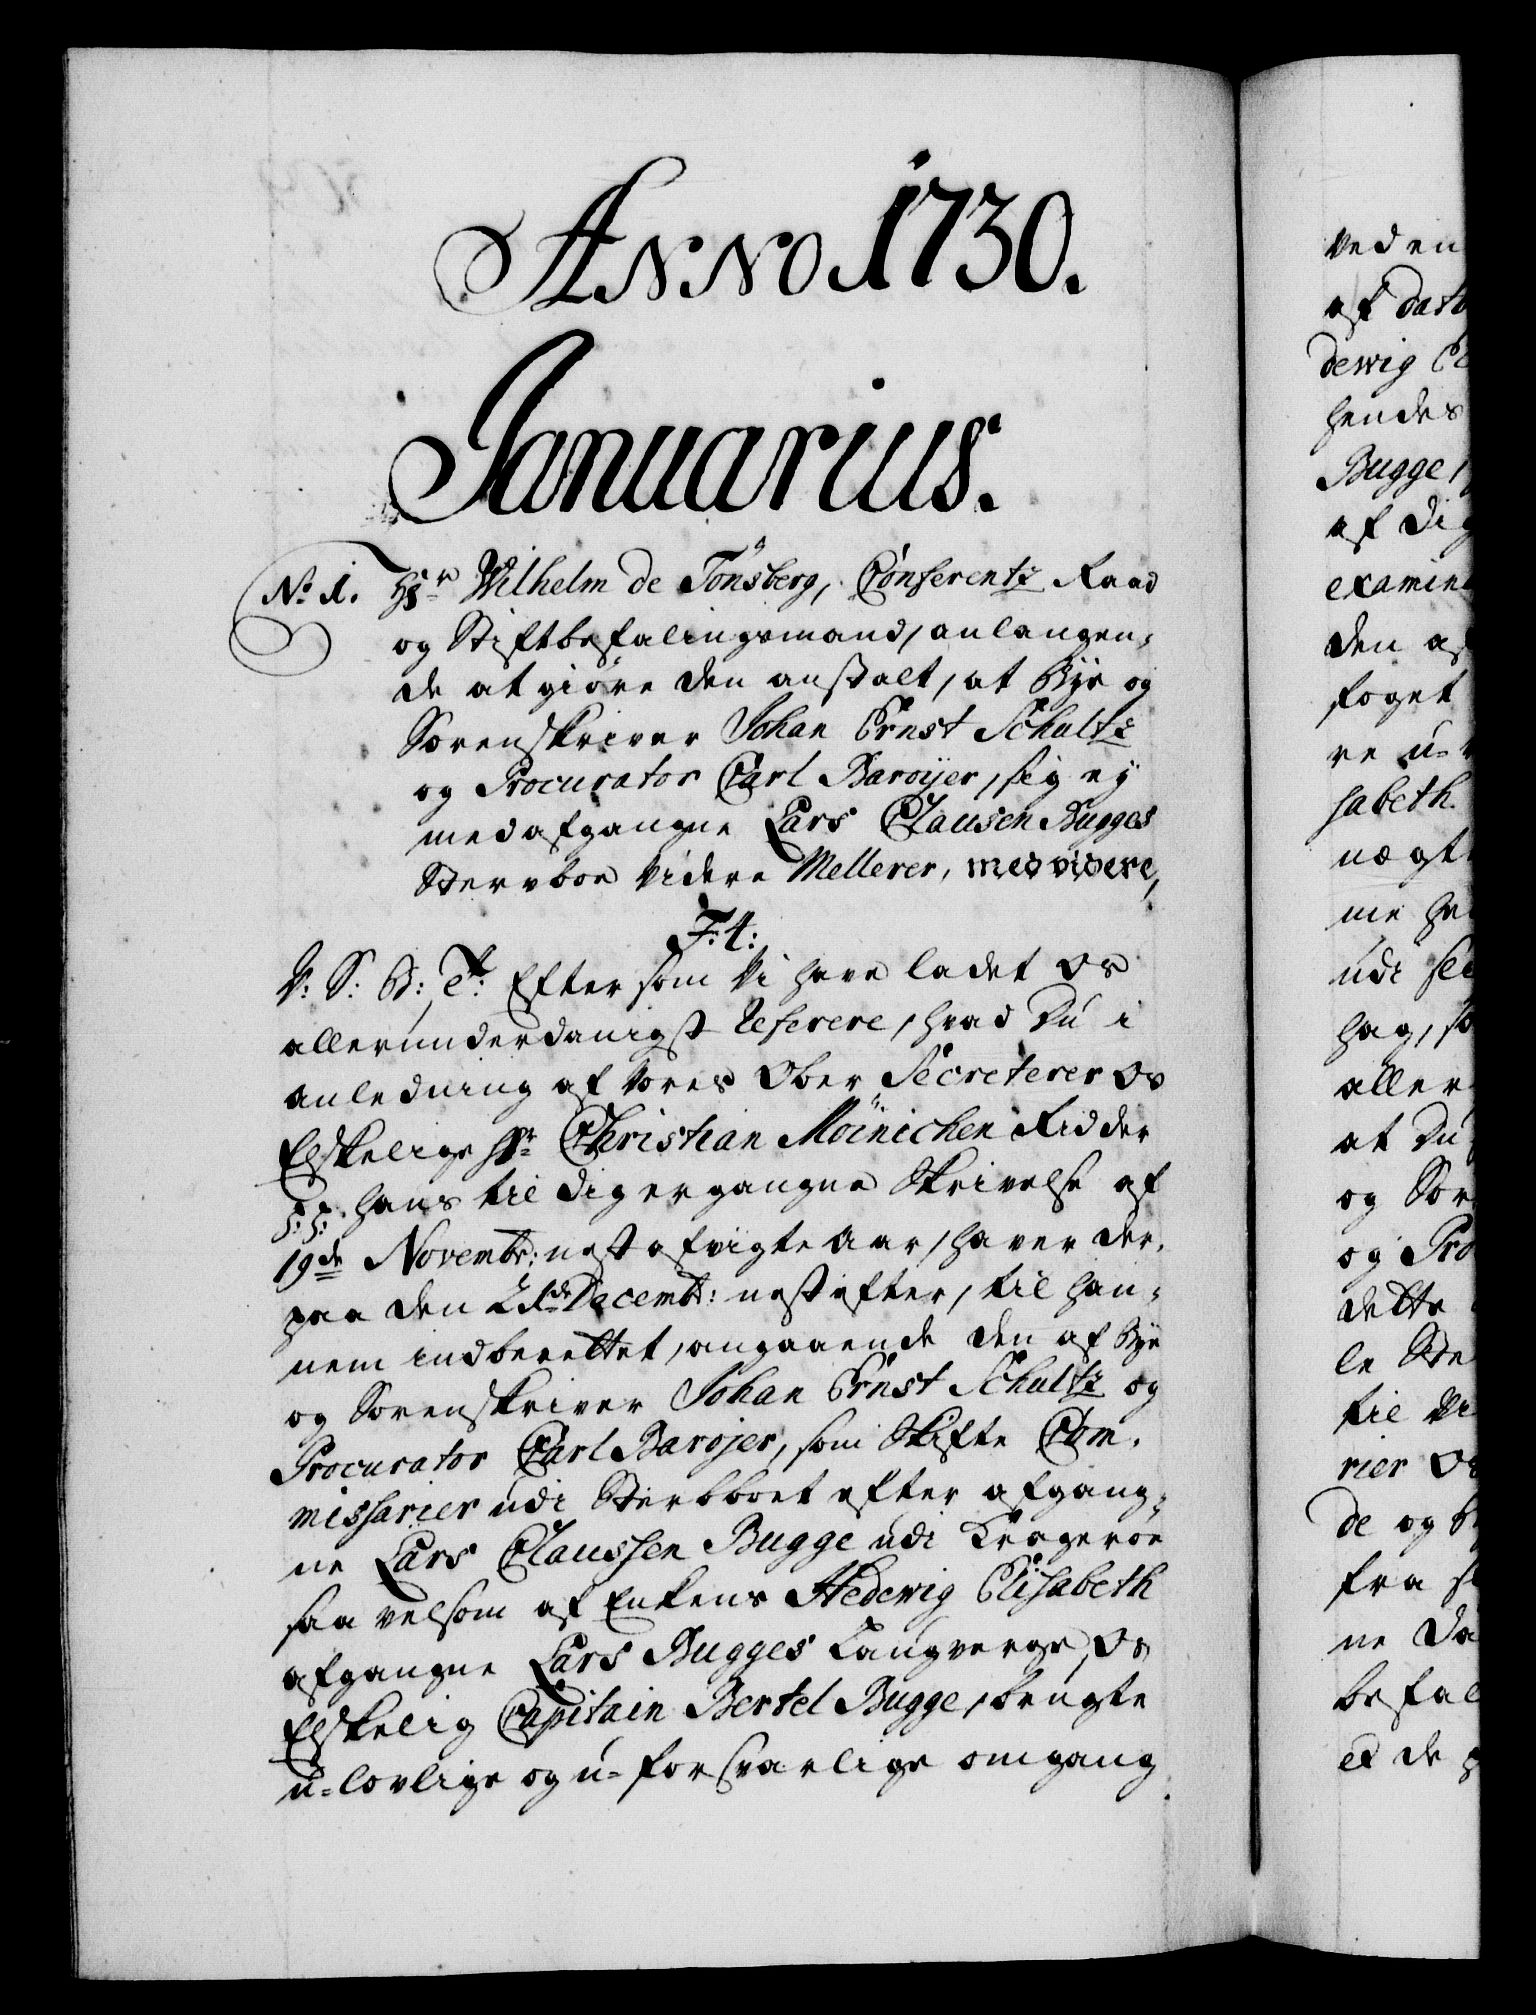 Anno 1730.
Januarius.
No. 1. Hr. Wilhelm de Tonsberg, Conferentz Raad
og Stiftbefalingsmand, anlangen,
de at giøre den anstalt, at Bye og
Sorenskriver Johan Ernst Schultz
og Procurator Carl Baroyer, sig ey
med afgangne Lars Clausen Bugges
Stervboe videre Mellerer, med videre,
F: 4:
V: S: G: T: Eftersom Vi have ladet Os
allerunderdanigst Referere, hvad Du i
anledning af Vores Ober Secreterer Os
Elskelige Hr. Christian Möinichen Ridder
P.P. hans til dig ergangne Skrivelse af
19de Novembr: nest afvigte Aar, haver der,
paa den Decembr: nest efter, til han,
nem indberettet, angaaende den af Bye
og Sorenskriver Johan Ernst Schultz og
Procurator Carl Barojer, som Skifte Com,
missarier udi Sterbboet efter afgang,
ne Lars Claussen Bugge udi Krageroe
saavelsom af Enkens Hedewig Elisabeth
afgangne Lars Bugges Laugverge, Os
Elskelig Capitain Bertel Bugge, brugte
u-lovlige og u-forsvarlige omgang
ved en
af dat
dewig El
hendes
Bugge,
af dig
examin
den af
foget
re u-
sabeth
nægt
me ha
udi
hag, so
aller
at Du
og Sor
og Pro
dette
le Ste
til Vi
rier Os
de og
fra
ne Da
befal
et de